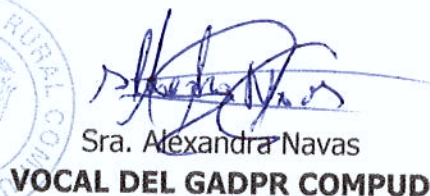 RURAL COM
Sra. Alexandra Navas
VOCAL DEL GADPR COMPUD